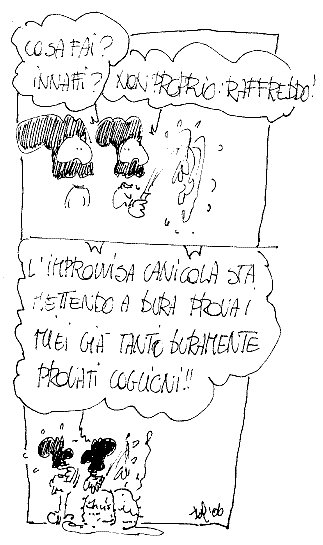 COSA FAI?
INNAFFI?
NON PROPRIO: RAFFREDDO!
L'IMPROVVISA CANICOLA STA
METTENDO A DURA PROVA I
MIEI GIÀ TANTE DURAMENTE
PROVATI COGLIONI!!